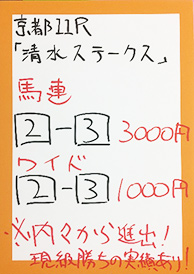 京都11R
「清水ステークス」
馬連
2-3 3000円
ワイド
2-3 1000円
※内々から進出!
現級勝ちの実績あり!